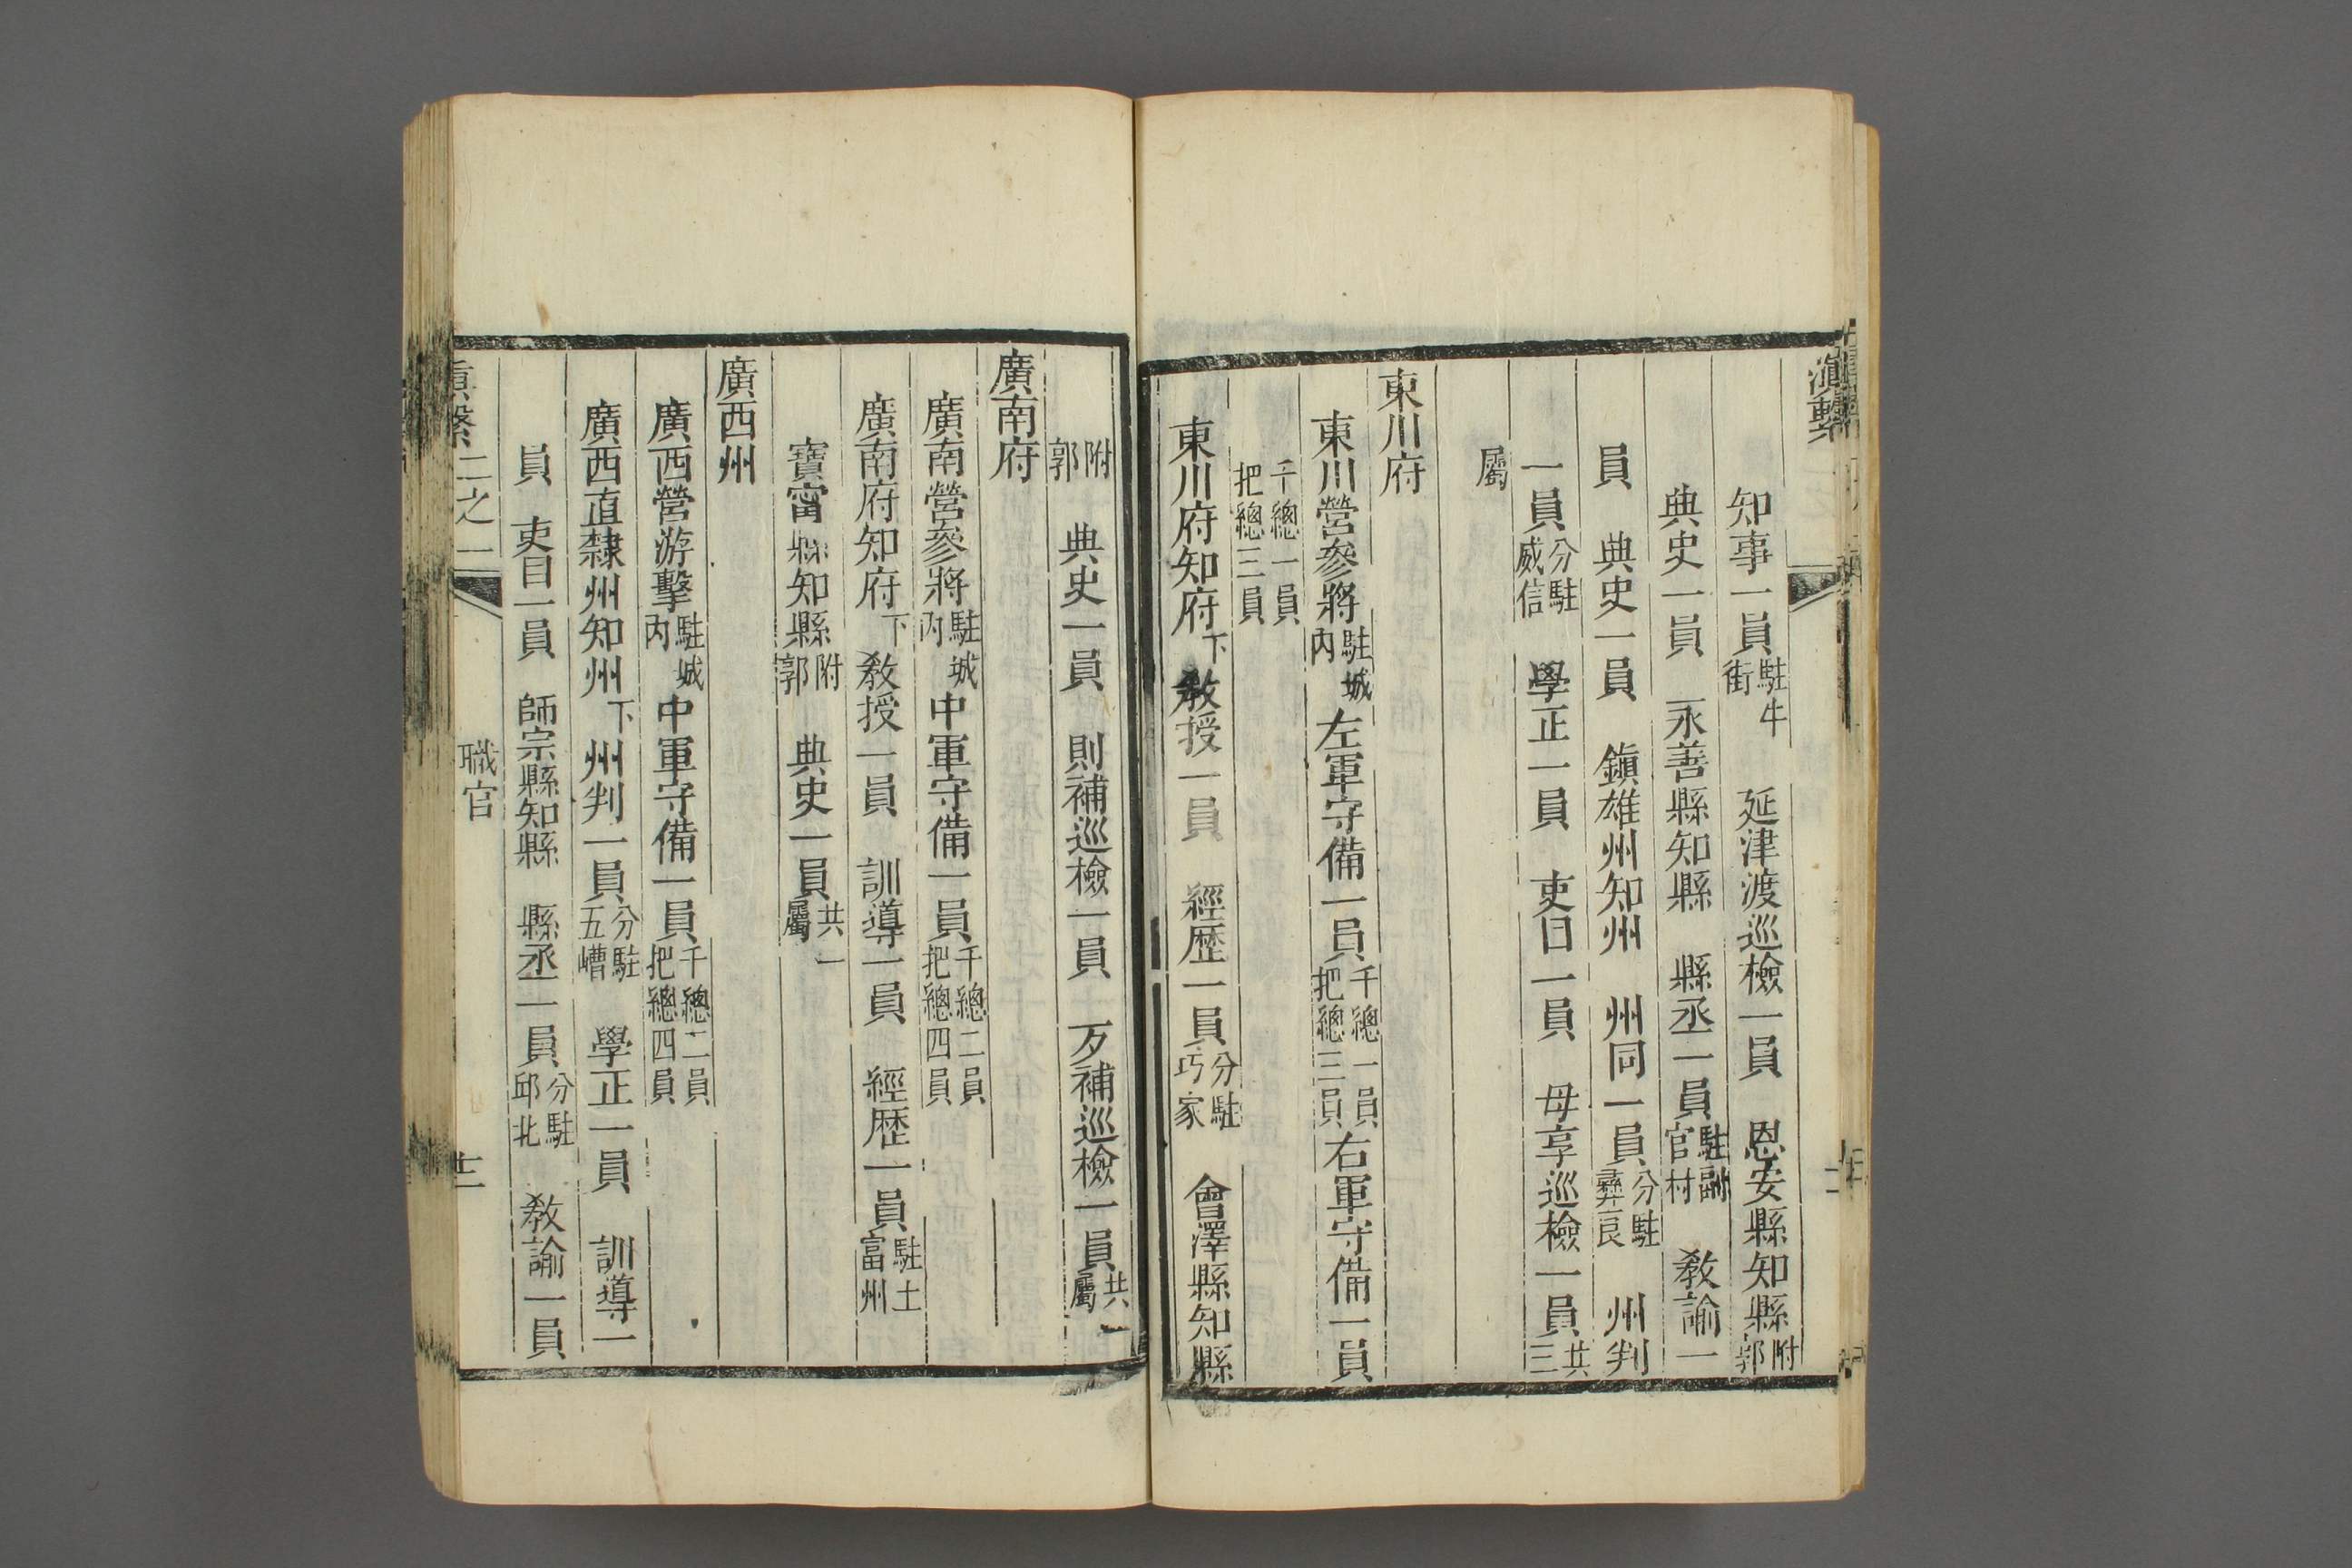 滇繫
知事一員駐牛街　延津渡巡檢一員　恩安縣知縣附郭
典史一員　永善縣知縣　縣丞一員駐副官村　教諭一
員　典史一員　鎮雄州知州　州同一員分駐彝良　州判
一員分駐威信　學正一員　吏目一員　母享巡檢一員共三
屬
東川府
東川營參將駐城內左軍守備一員千總一員把總三員右軍守備一員
千總一員把總三員
東川府知府下教授一員　經歷一員分駐巧家　會澤縣知縣
附郭　典史一員　則補巡檢一員　歹補巡檢一員共一屬
廣南府
廣南營參將駐城內中軍守備一員千總二員把總四員
廣南府知府下教授一員　訓導一員　經歷一員駐土富州
寶甯縣知縣附郭　典史一員共一屬
廣西州
廣西營游擊駐城內中軍守備一員千總二員把總四員
廣西直隸州知州下州判一員分駐五嶆　學正一員　訓導一
員　吏目一員　師宗縣知縣　縣丞一員分駐邱北　教諭一員
滇繫　二之一　職官